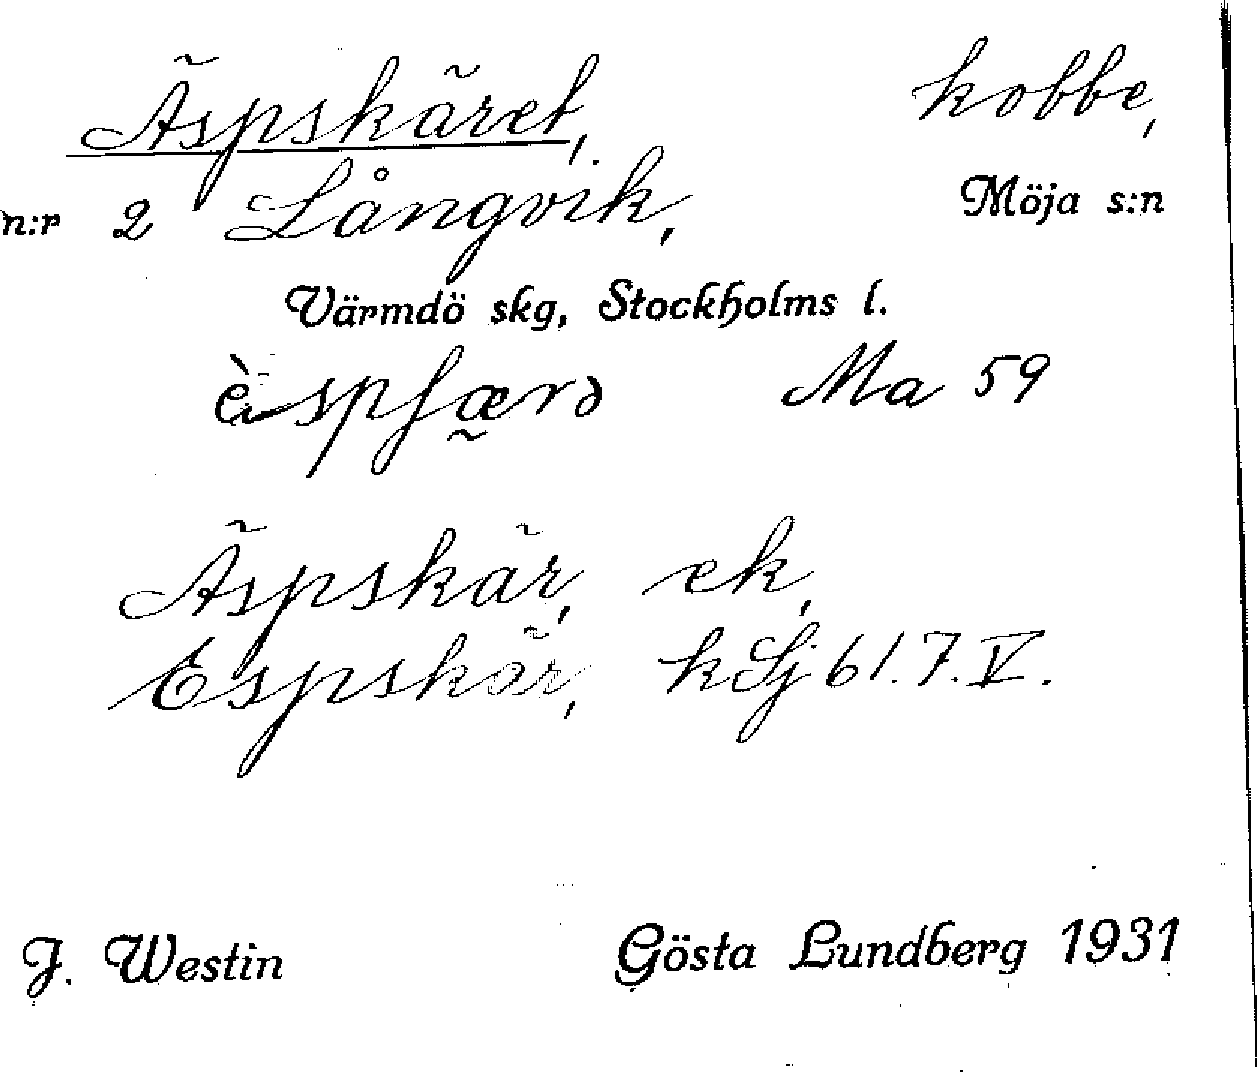 Äspskäret, kobbe,
n:r 2 Långvik, Möja s:n
Värmdö skg, Stockholms l.
Ma 59
Äspskär, ek,
Espskär, k Lj 61.7.V.
J. Westin Gösta Lundberg 1931